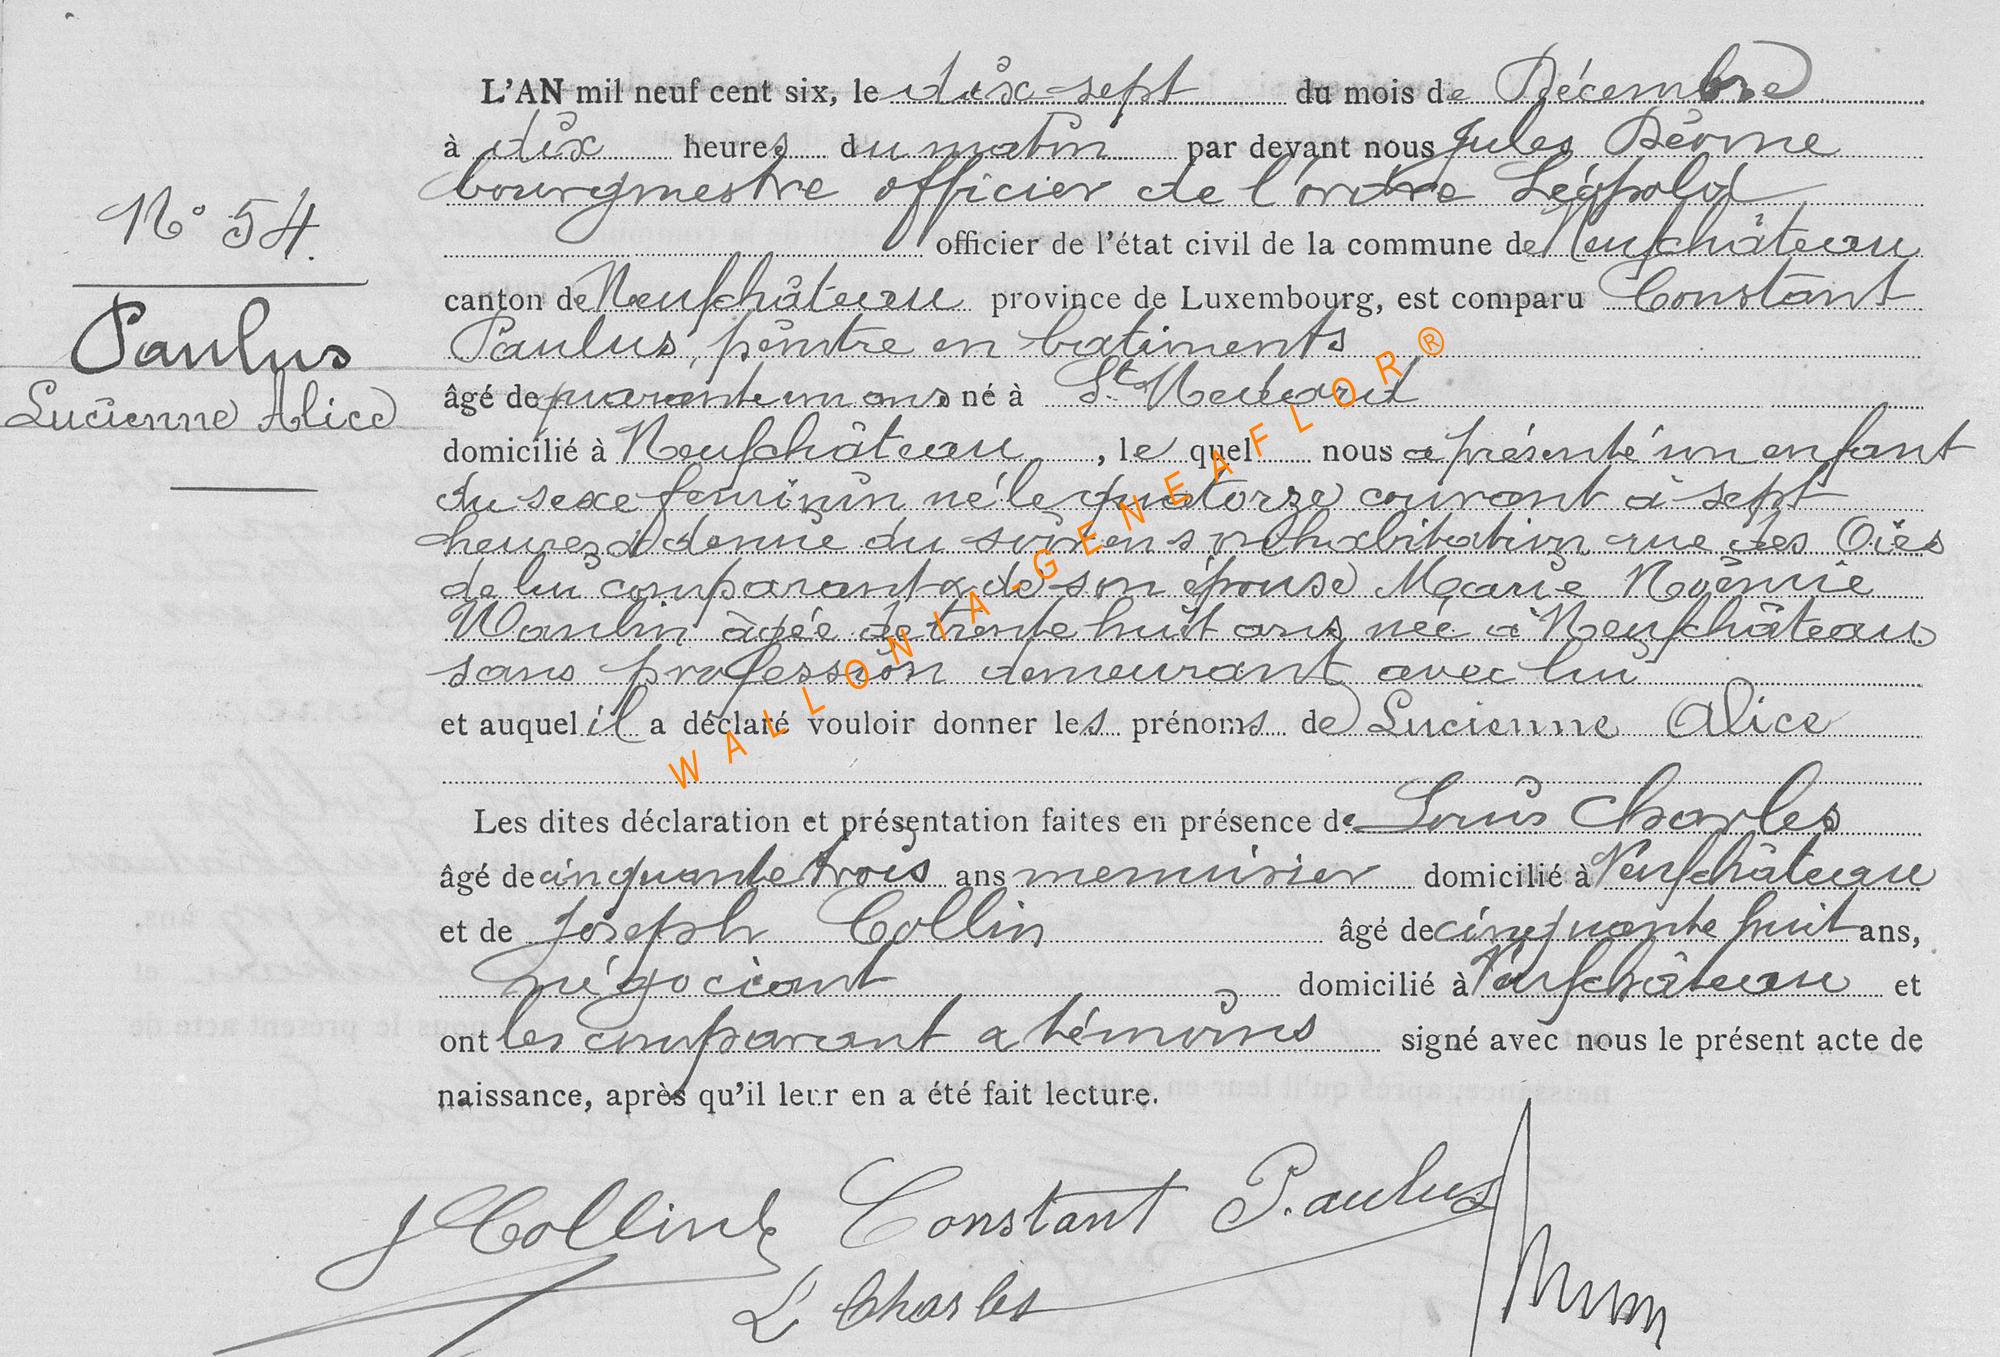 L'AN mil neuf cent six, le dix sept du mois de Décembre
à dix heures du matin par devant nous Jules
bourgmestre officier de l'ordre Léopold
officier de l'état civil de la commune de Neufchâteau
N° 54.
canton de Neufchâteau province de Luxembourg, est comparu Constant
Paulus
Paulus, peintre en batiments
Lucienne Alice
âgé de quarante un ans né à St Medard
domicilié à Neufchâteau, le quel nous a présenté un enfant
du sexe feminin né le quatorze courant à sept
heures & demie du soir en son habitation rue des Oies
de lui comparant & de son épouse Marie Noëmie
Waulin âgée de trente huit ans, née à Neufchâteau
sans profession demeurant avec lui
et auquel il a déclaré vouloir donner les prénoms de Lucienne Alice
WALLONIA-GENEAFLOR®
Les dites déclaration et présentation faites en présence de Louis Charles
âgé de cinquante trois ans menuisier domicilié à Neufchâteau
et de Joseph Collin âgé de cinquante huit ans,
négociant domicilié à Neufchâteau et
ont les comparant & témoins signé avec nous le présent acte de
naissance, après qu'il leur en a été fait lecture.
J Collin Constant Paulus
L Charles